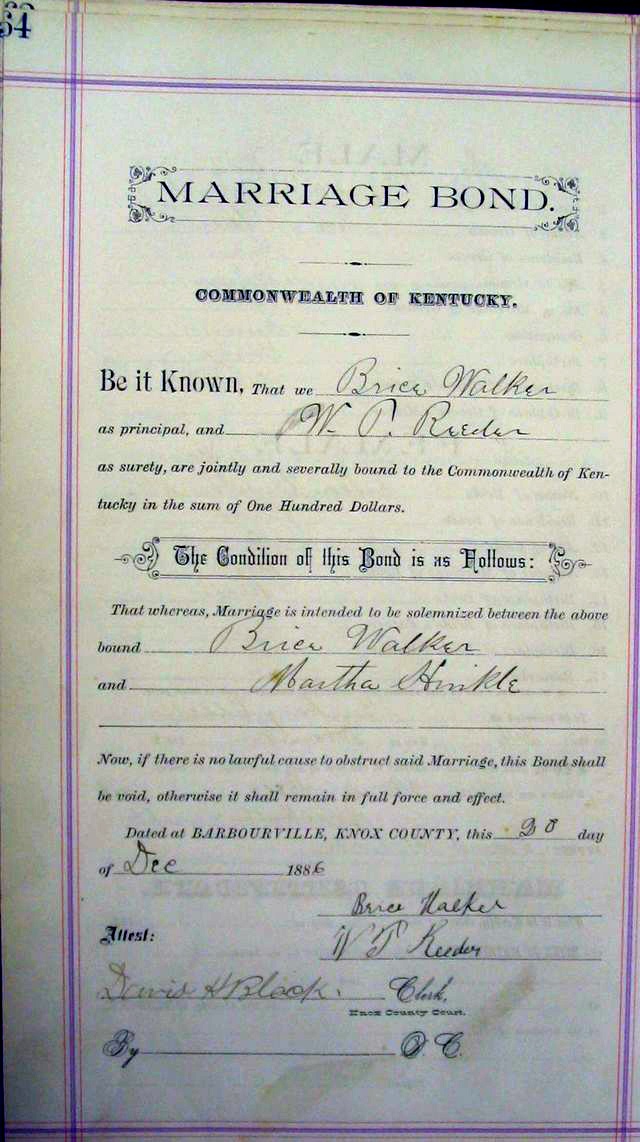 54
MARRIAGE BOND.
COMMONWEALTH OF KENTUCKY.
Be it Known, That we Brice Walker
as principal, and W. T. Reeder
as surety, are jointly and severally bound to the Commonwealth of Ken-
tucky in the sum of One Hundred Dollars.
The Condition of this Bond is as Follows:
That whereas, Marriage is intended to be solemnized between the above
bound Brice Walker
and Martha Hinkle
Now, if there is no lawful cause to obstruct said Marriage, this Bond shall
be void, otherwise it shall remain in full force and effect.
Dated at BARBOURVILLE, KNOX COUNTY, this 20 day
of Dec 1886
Brice Walker
Attest: W T Reeder
David H Black. Clerk,
Knox County Court.
By D. C.